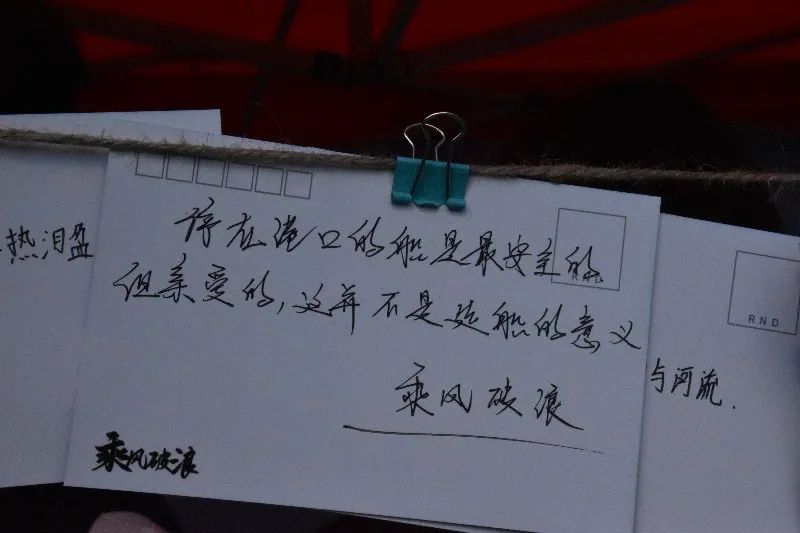 热泪盈
停在港口的船是最安全的
但亲爱的,这并不是造船的意义
乘风破浪
乘风破浪
RND
与河流.